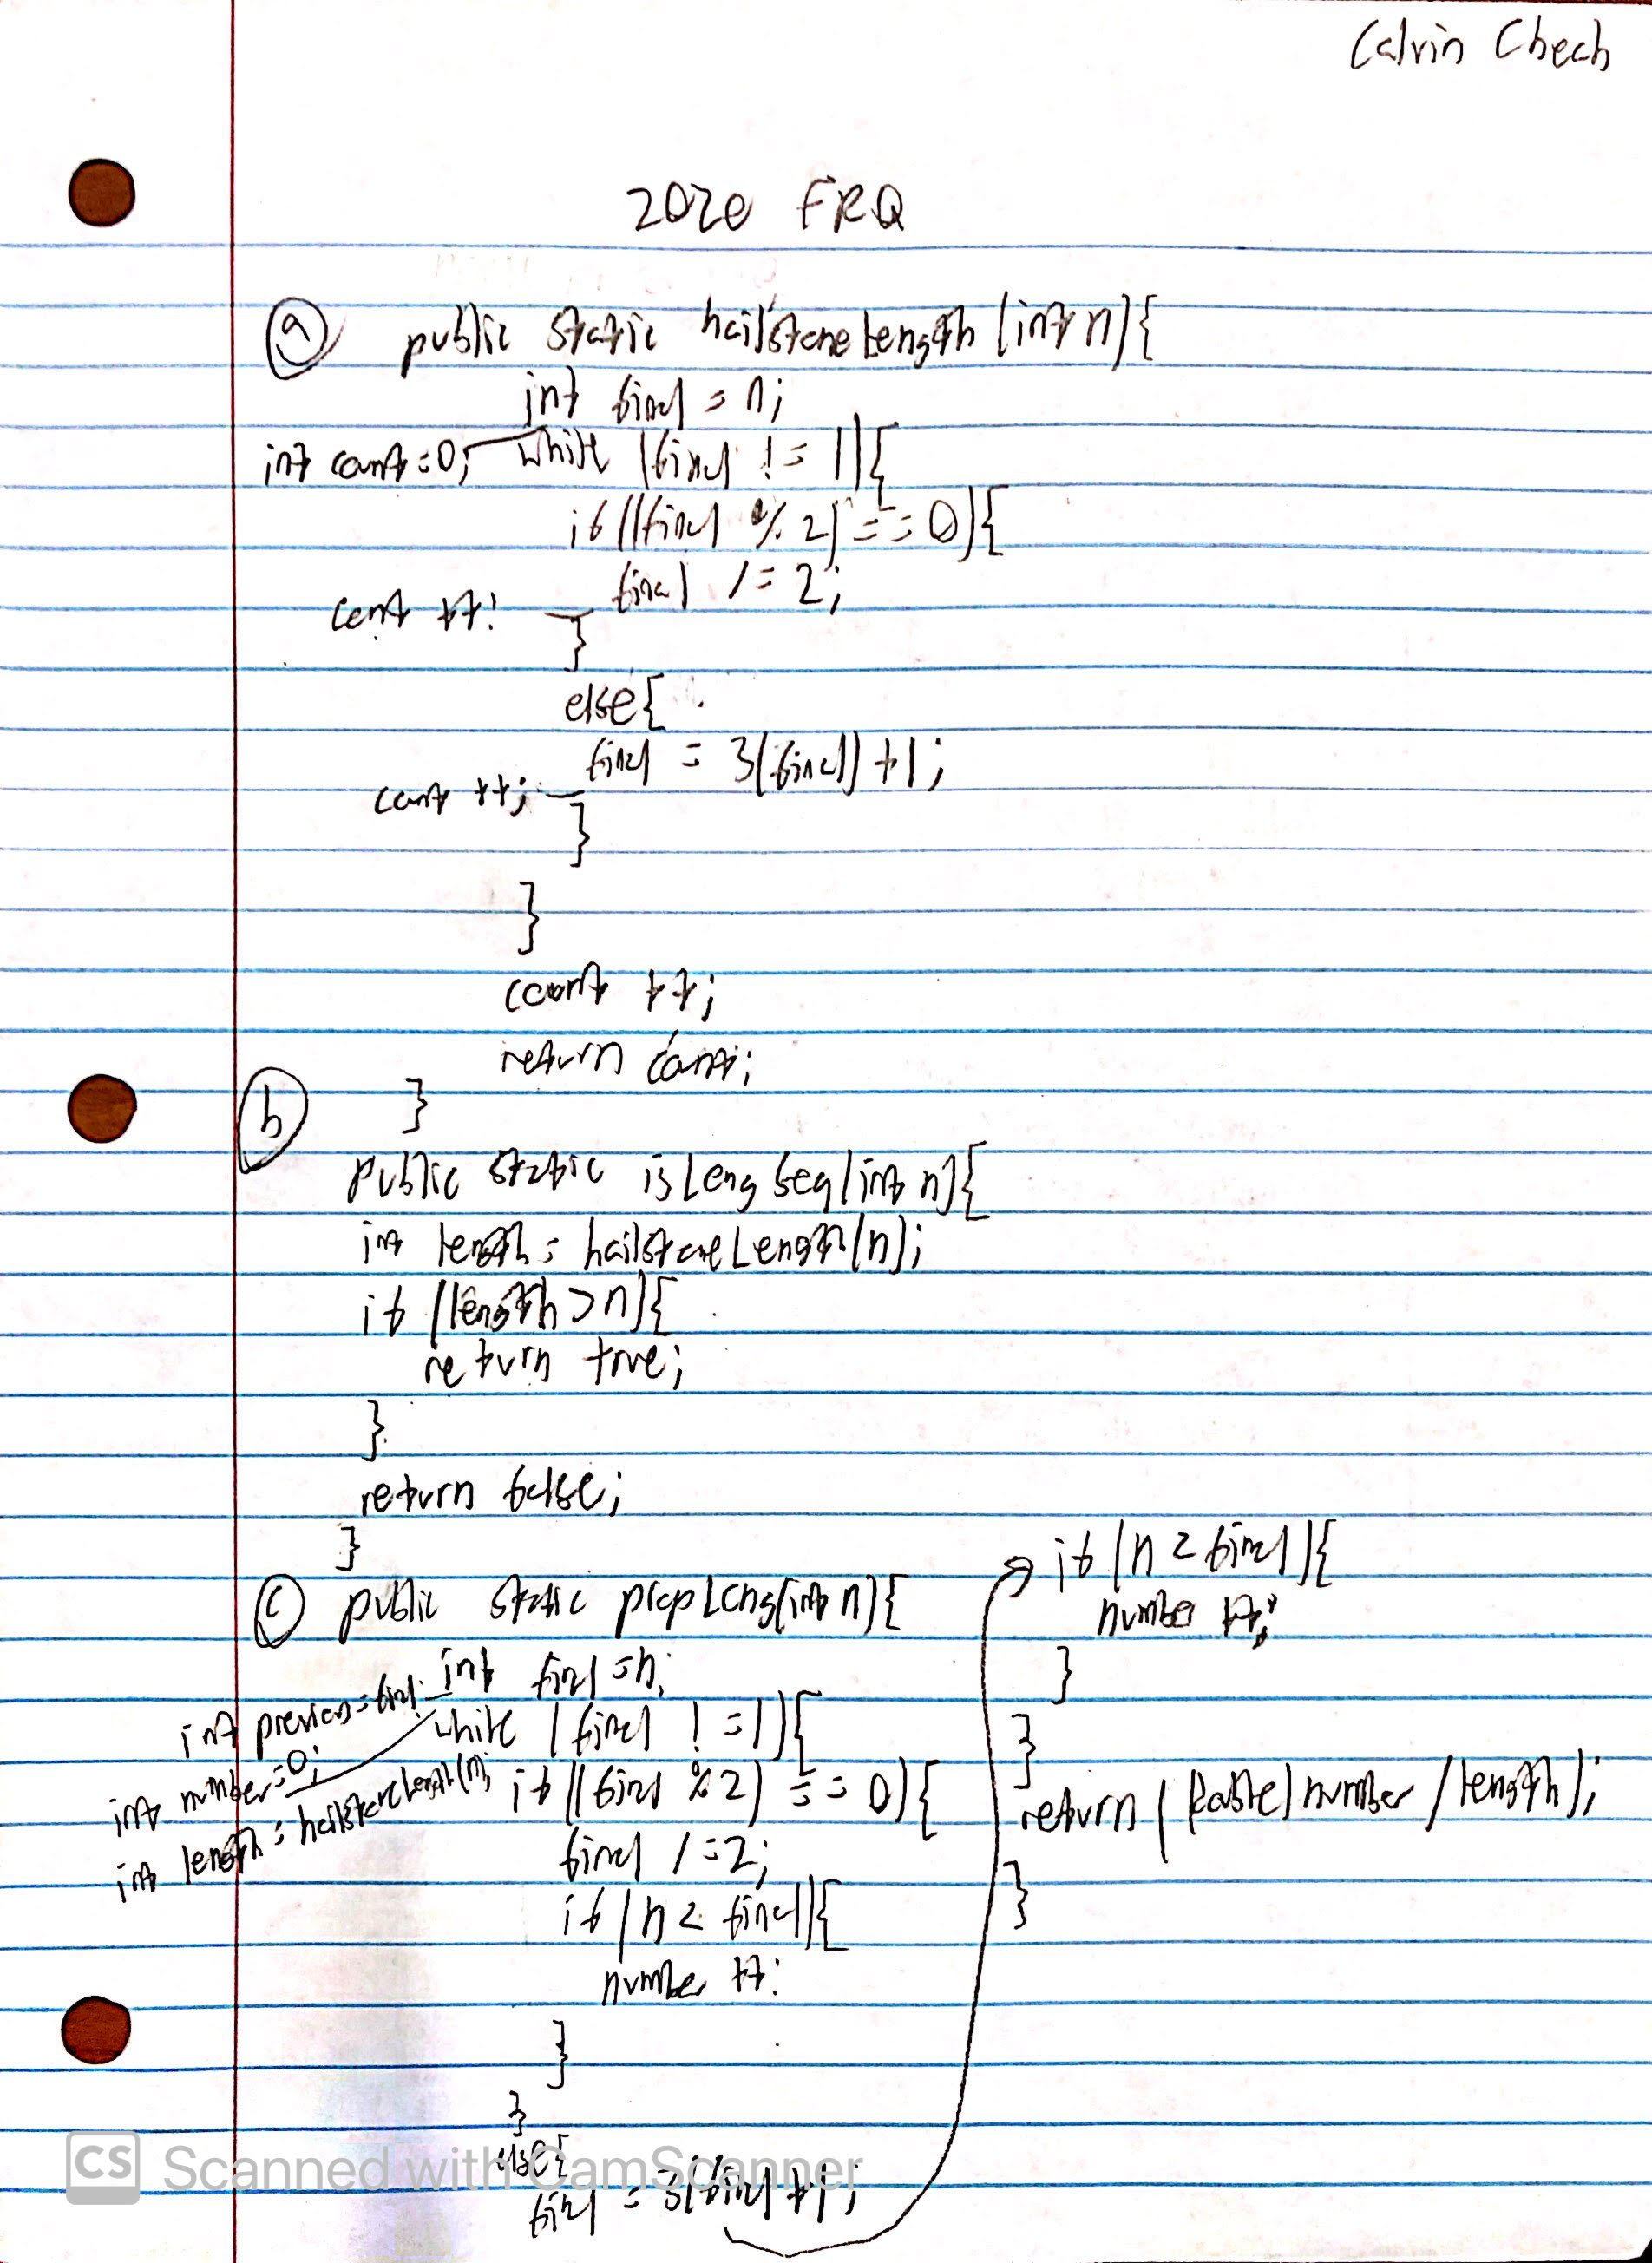 Calvin Chech
2020 FRQ
(a) public static hailstoneLength(int n){
int final = n;
int count = 0; while (final != 1){
if ((final % 2) == 0){
final /= 2;
count ++;
}
else{
final = 3(final) +1;
count ++;
}
}
count ++;
return count;
}
(b)
public static isLongSeq(int n){
int length = hailstoneLength(n);
if (length > n){
return true;
}
return false;
}
(c) public static propLong(int n){
int final = n;
int previous = final;
int number = 0;
int length = hailstoneLength(n);
while (final != 1){
if ((final % 2) == 0){
final /= 2;
if (n < final){
number ++;
}
}
else{
final = 3(final) +1;
if (n < final){
number ++;
}
}
return ((double) number / length);
}
CS Scanned with CamScanner